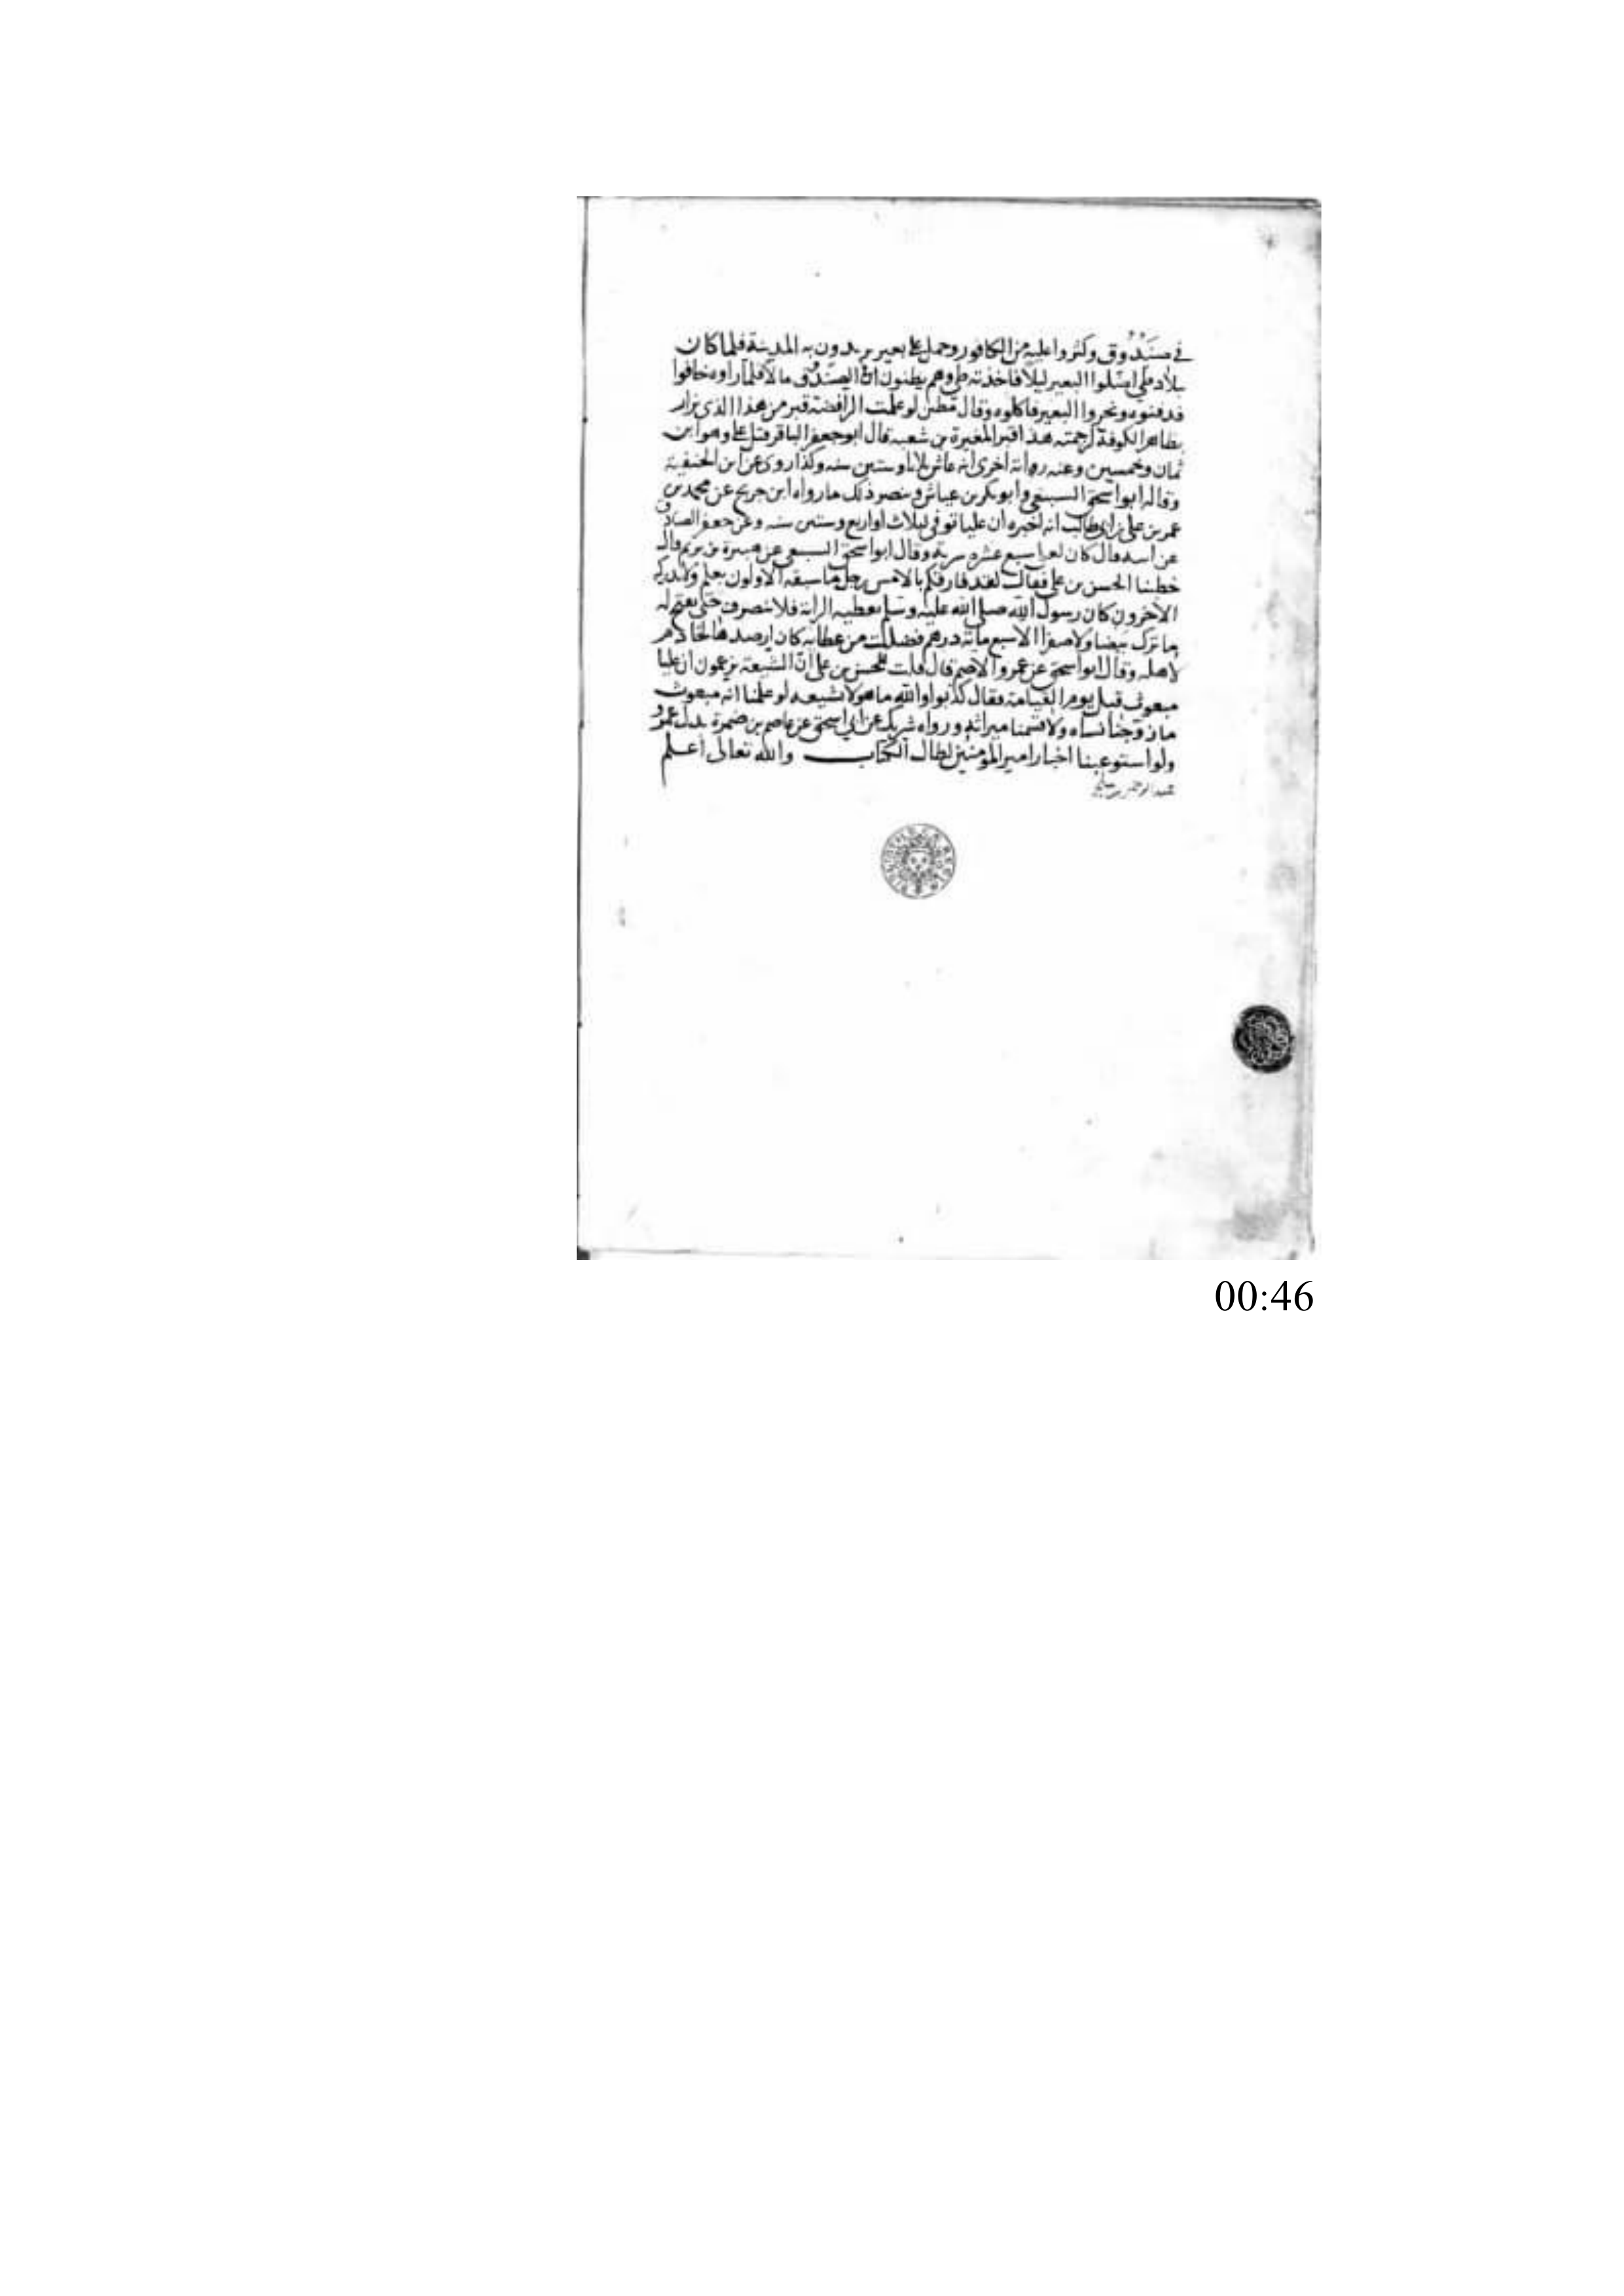 في صندوق وكثروا عليه من الكافور وحمل على بعير يريدون به المدينة فلما كان
ببلاد طي اضلوا البعير ليلا فاخذته طي وهم يظنون ان في الصندوق مالا فلما راوه خافوا
فدفنوه ونحروا البعير فاكلوه وقال مطين لو علمت الرافضة قبر من هذا الذي يزار
بظاهر الكوفة لرجمته هذا قبر المغيرة بن شعبه قال ابو جعفر الباقر قتل علي وهو ابن
ثمان وخمسين وعنه رواية اخرى انه عاش ثلاثا وستين سنه وكذا روى عن ابن الحنفية
وقاله ابو اسحق السبيعي وابو بكر بن عياش وينصر ذلك ما رواه ابن جريج عن محمد بن
عمر بن علي بن ابي طالب انه اخبره ان عليا توفي لثلاث او اربع وستين سنه وعن جعفر الصادق
عن ابيه قال كان لعلي سبع عشره سرية وقال ابو اسحق السبيعي عن هبيرة بن يريم قال
خطبنا الحسن بن علي فقال لقد فارقكم بالامس رجل ما سبقه الاولون بعلم ولا يدركه
الاخرون كان رسول الله صلى الله عليه وسلم يعطيه الراية فلا ينصرف حتى يفتح له
ما ترك بيضا ولا صفرا الا سبع ماية درهم فضلت من عطايه كان ارصدها لخادم
لاهله وقال ابو اسحق عن عمرو الاصم قال قلت للحسن بن علي ان الشيعة يزعمون ان عليا
مبعوث قبل يوم القيامة فقال كذبوا والله ما هولا شيعه لو علمنا انه مبعوث
ما زوجنا نساه ولا قسمنا ميراثه ورواه شريك عن ابي اسحق عن عاصم بن ضمرة بدل عمرو
ولو استوعبنا اخبار امير المومنين لطال الكتاب والله تعالى اعلم
00:46